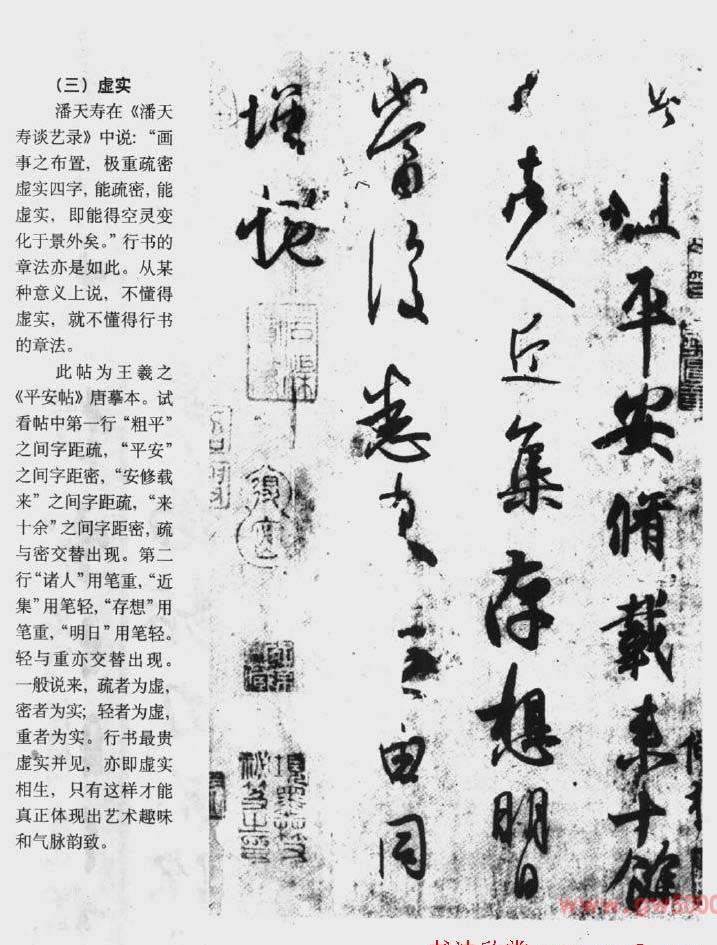 （三）虚实
潘天寿在《潘天
寿谈艺录》中说：“画
事之布置，极重疏密
虚实四字，能疏密，能
虚实，即能得空灵变
化于景外矣。”行书的
章法亦是如此。从某
种意义上说，不懂得
虚实，就不懂得行书
的章法。
此帖为王羲之
《平安帖》唐摹本。试
看帖中第一行“粗平”
之间字距疏，“平安”
之间字距密，“安修载
来”之间字距疏，“来
十余”之间字距密，疏
与密交替出现。第二
行“诸人”用笔重，“近
集”用笔轻，“存想”用
笔重，“明日”用笔轻。
轻与重亦交替出现。
一般说来，疏者为虚，
密者为实；轻者为虚，
重者为实。行书最贵
虚实并见，亦即虚实
相生，只有这样才能
真正体现出艺术趣味
和气脉韵致。
此粗平安脩載来十餘
日諸人近集存想明日
當復悉来无由同
增慨